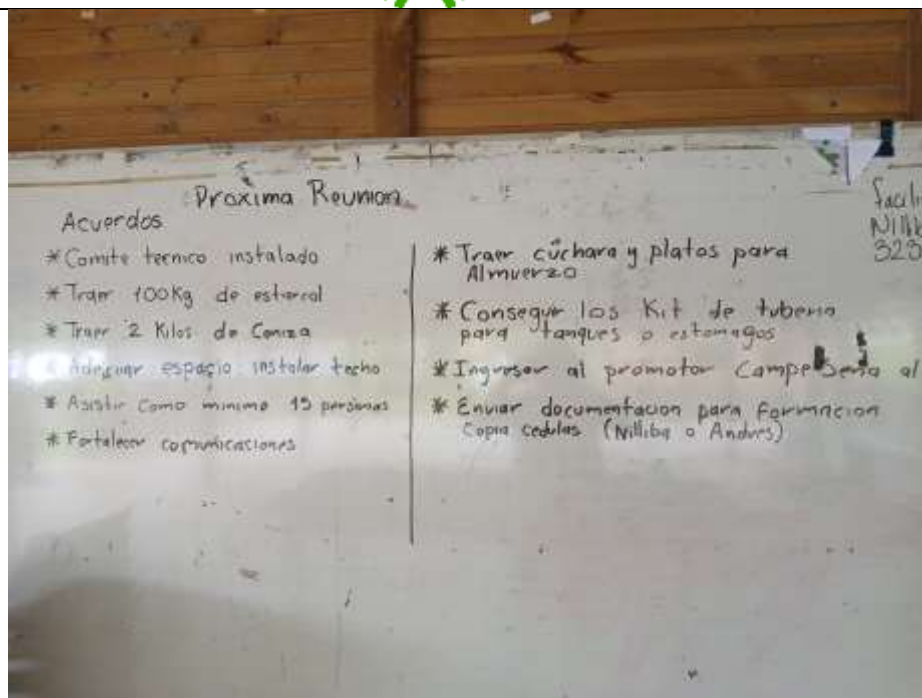 Proxima Reunion
Acuerdos
* Comite tecnico instalado
* Traer 100Kg de estercol
* Traer 2 Kilos de Ceniza
* Adecuar espacio instalar techo
* Asistir como minimo 15 personas
* Fortalecer comunicaciones
* Traer cuchara y platos para
Almuerzo
* Conseguir los Kit de tuberia
para tanques o estomagos
* Ingresar al promotor CampeSena al
* Enviar documentacion para Formacion
Copia cedulas (Nilliba o Andres)
323